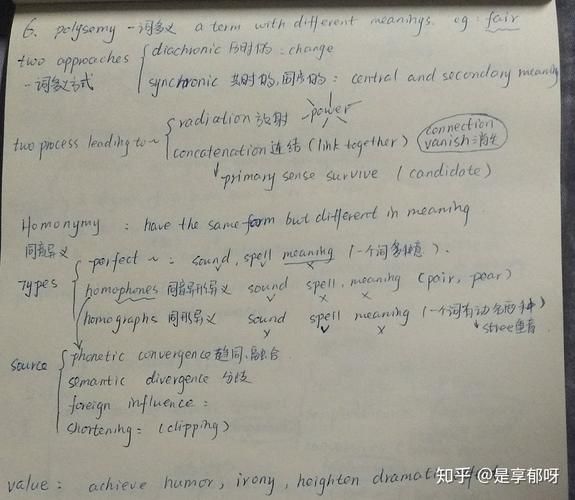 6. polysemy 一词多义 a term with different meanings. eg: fair
two approaches diachronic 历时的: change
一词多义方式 synchronic 共时的,同步的: central and secondary meaning
two process leading to ~ radiation 放射 power
concatenation 连结 (link together) connection vanish 消失
primary sense survive (candidate)
Homonymy : have the same form but different in meaning
同音异义
Types perfect ~ : sound, spell meaning (一个词多种意).
homophones 同音异形异义 sound spell, meaning (pair, pear)
homographs 同形异义 sound spell meaning (一个词有动名两种)
source phonetic convergence 趋同,融合
semantic divergence 分歧
foreign influence :
shortening: (clipping)
value: achieve humor, irony, heighten dramatic
知乎 @是享郁呀